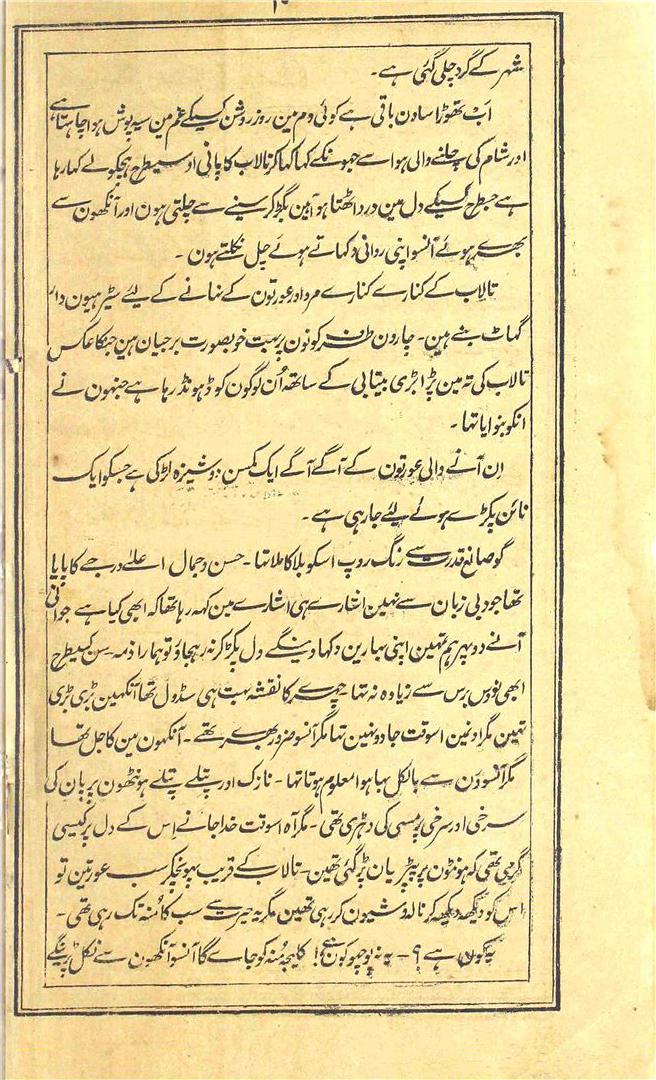 ۱۰
شہر کے گرد چلی گئی ہے۔
اب تھوڑا سا دن باقی ہے کوئی دم مین روز روشن کسیکے غم مین سیہ پوش ہوا چاہتا ہے
اور شام کی چلنے والی ہوا سے جھونکے کہا کہا کر تالاب کا پانی اوسیطرح ہچکولے کہا رہا
ہے جسطرح کسیکے دل مین درد اٹھتا ہو آہین بگڑ کر سینے سے چلتی ہون اور آنکھون سے
بھرے ہوئے آنسو اپنی روانی دکہاتے ہوئے چل نکلتے ہون۔
تالاب کے کنارے کنارے مرد اور عورتون کے نہانے کے لیئے سیڑہیون دار
گہاٹ بنے ہین۔ چارون طرف کونون پر بہت خوبصورت برجیان ہین جنکا عکس
تالاب کی تہ مین پڑا بڑی بیتابی کے ساتھ اُن لوگون کو ڈہونڈ رہا ہے جنہون نے
انکو بنوایا تہا۔
اِن آنے والی عورتون کے آگے آگے ایک کمسن دوشیزہ لڑکی ہے جسکو ایک
نائن پکڑے ہوئے لیئے جارہی ہے۔
گو صانع قدرت سے رنگ روپ اسکو بلا کا ملا تہا۔ حسن و جمال اعلےٰ درجے کا پایا
تھا جو دبی زبان سے نہین اشارے ہی اشارے مین کہہ رہا تھا کہ ابھی کیا ہے جوانی
آنے دو پہر ہم تمہین اپنی بہارین دکہا دینگے دل پکڑ کر نہ رہجاؤ تو ہمارا ذمہ۔ سِن کسیطرح
ابھی نو دس برس سے زیادہ نہ تہا۔ چہرے کا نقشہ بہت ہی سڈول تھا آنکہین بڑی بڑی
تہین مگر اونین اسوقت جادو نہین تہا مگر آنسو ضرور بھرے تھے۔ آنکہون مین کاجل تھا
مگر آنسوؤن سے بالکل بہا ہوا معلوم ہوتا تہا۔ نازک اور پتلے پتلے ہونٹھون پر پان کی
سرخی اور سرخی پر مسی کی دہڑی تھی۔ مگر آہ اسوقت خدا جانے اِس کے دل پر کیسی
گرمی تھی کہ ہونٹون پر پپڑیان پڑ گئی تھین۔ تالاب کے قریب پہونچکر سب عورتین تو
اس کو دیکھ دیکھ کر نالہ و شیون کر رہی تھین مگر یہ حیرت سے سب کا منہ تک رہی تھی۔
یہ کون ہے؟۔ یہ نہ پوچھو کون ہے! کلیجہ منہ کو آجائے گا آنسو آنکھون سے نکل پڑینگے